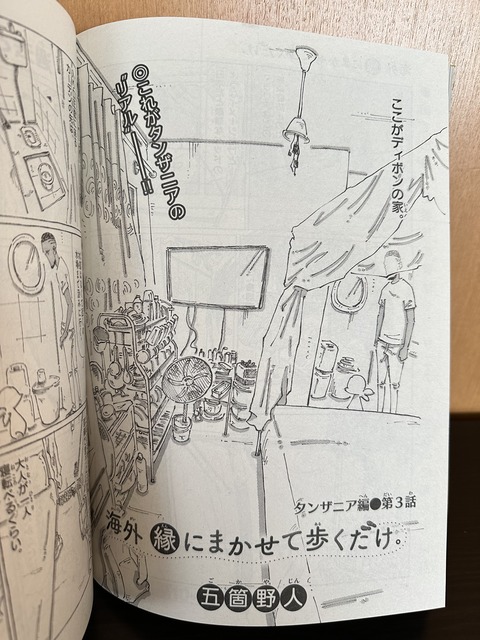 ここがディボンの家。
◎これがタンザニアの
リアル――!!
タンザニア編●第3話
海外 縁にまかせて歩くだけ。
五箇野人
大人が一人
寝転べるくらい。